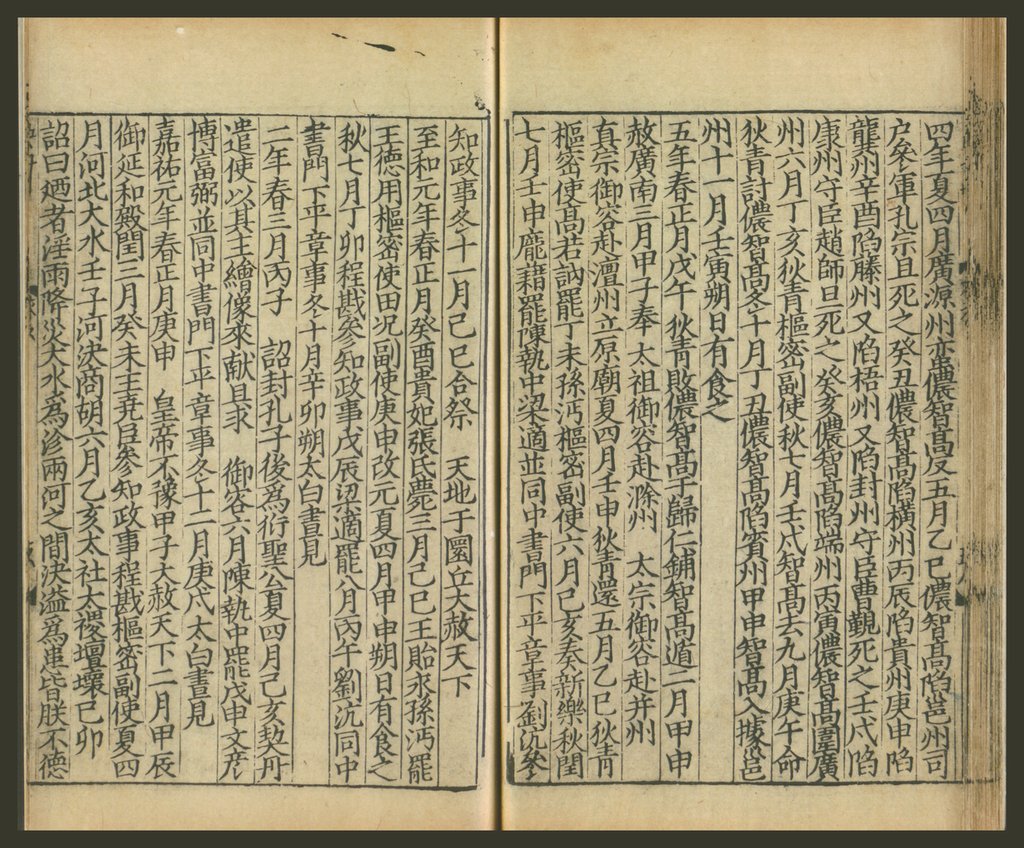 四年夏四月廣源州蠻儂智髙反五月乙巳儂智髙陷邕州司
户參軍孔宗旦死之癸丑儂智髙陷橫州丙辰陷貴州庚申陷
龔州辛酉陷藤州又陷梧州又陷封州守臣曹覲死之壬戌陷
康州守臣趙師旦死之癸亥儂智髙陷端州丙寅儂智髙圍廣
州六月丁亥狄青樞密副使秋七月壬戌智髙去九月庚午命
狄青討儂智髙冬十月丁丑儂智髙陷賓州甲申智髙入據邕
州十一月壬寅朔日有食之
五年春正月戊午狄青敗儂智髙于歸仁鋪智髙遁二月甲申
赦廣南三月甲子奉 太祖御容赴滁州 太宗御容赴并州
真宗御容赴澶州立原廟夏四月壬申狄青還五月乙巳狄青
樞密使髙若訥罷丁未孫沔樞密副使六月己亥奏新樂秋閏
七月壬申龐籍罷陳執中梁適並同中書門下平章事劉沆參
知政事冬十一月己巳合祭 天地于圜丘大赦天下
至和元年春正月癸酉貴妃張氏薨三月己巳王貽永孫沔罷
王德用樞密使田况副使庚申改元夏四月甲申朔日有食之
秋七月丁卯程戡參知政事戊辰梁適罷八月丙午劉沆同中
書門下平章事冬十月辛卯朔太白晝見
二年春三月丙子 詔封孔子後為衍聖公夏四月己亥契丹
遣使以其主繪像來獻且求 御容六月陳執中罷戊申文彦
博富弼並同中書門下平章事冬十二月庚戌太白晝見
嘉祐元年春正月庚申 皇帝不豫甲子大赦天下二月甲辰
御延和殿閏三月癸未王堯臣參知政事程戡樞密副使夏四
月河北大水壬子河決商胡六月乙亥太社太禝壇壞己卯
詔曰廼者淫雨降災大水為沴兩河之間決溢為患皆朕不德